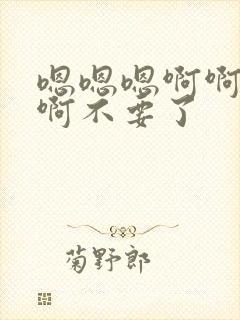 嗯嗯嗯啊啊
啊不要了
菊野郎